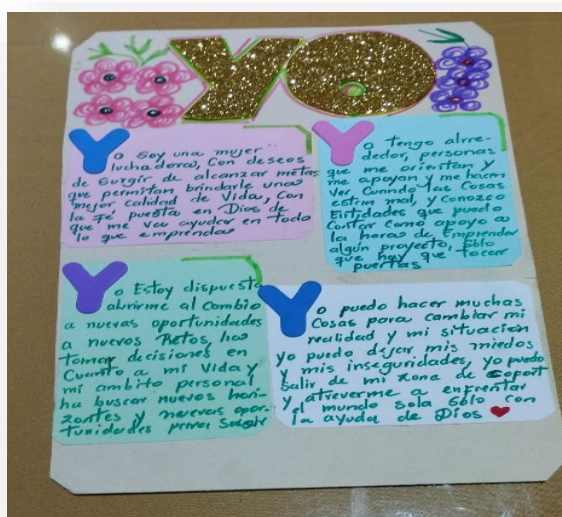 YO
Yo Soy una mujer
luchadora, Con deseos
de Surgir de alcanzar metas
que permitan brindarle una
mejor calidad de Vida, Con
la fé puesta en Dios de
que me va ayudar en todo
lo que emprenda
Yo tengo alrre-
dedor, personas
que me orientan y
me apoyan y me hacen
ver Cuando las Cosas
estan mal, y conozco
Entidades que puedo
Contar Como apoyo a
la hora de Emprender
algún proyecto, Sólo
que hay que tocar
puertas
Yo Estoy dispuesta
abrirme al Cambio
a nuevas oportunidades
a nuevos Retos, ha
tomar decisiones en
Cuanto a mi Vida y
mi ambito personal
ha buscar nuevos hori-
zontes y nuevas opor-
tunidades para Surgir
Yo puedo hacer muchas
Cosas para cambiar mi
realidad y mi situación
yo puedo dejar mis miedos
y mis inseguridades, yo puedo
Salir de mi zona de Cofort
y atreverme a enfrentar
el mundo sola Sólo con
la ayuda de Dios